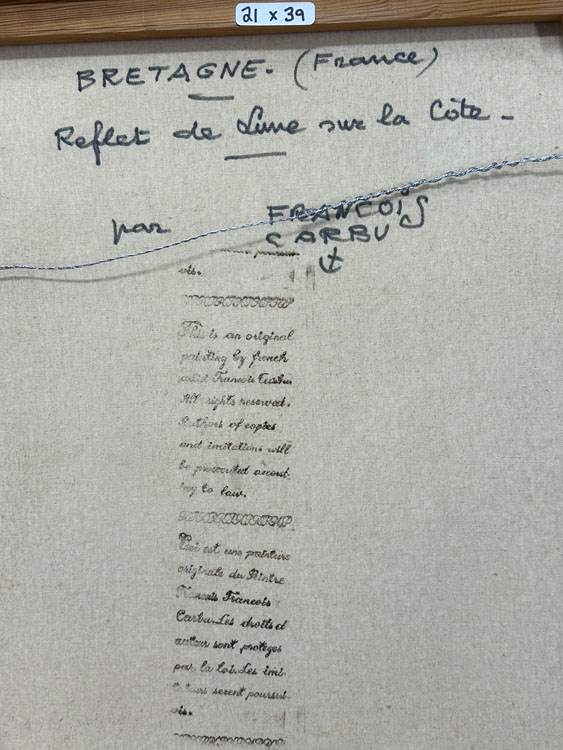 21 x 39
BRETAGNE. (France)
Reflet de Lune sur la Côte -
par FRANCOIS
CARBU
vis.
This is an original
painting by french
artist Francois Carbu.
All rights reserved.
Authors of copies
and imitations will
be prosecuted accord-
ing to law.
Ceci est une peinture
originale du Peintre
Francais Francois
Carbu. Les droits d
auteur sont protégés
par la loi. Les imi-
tateurs seront poursui
vis.